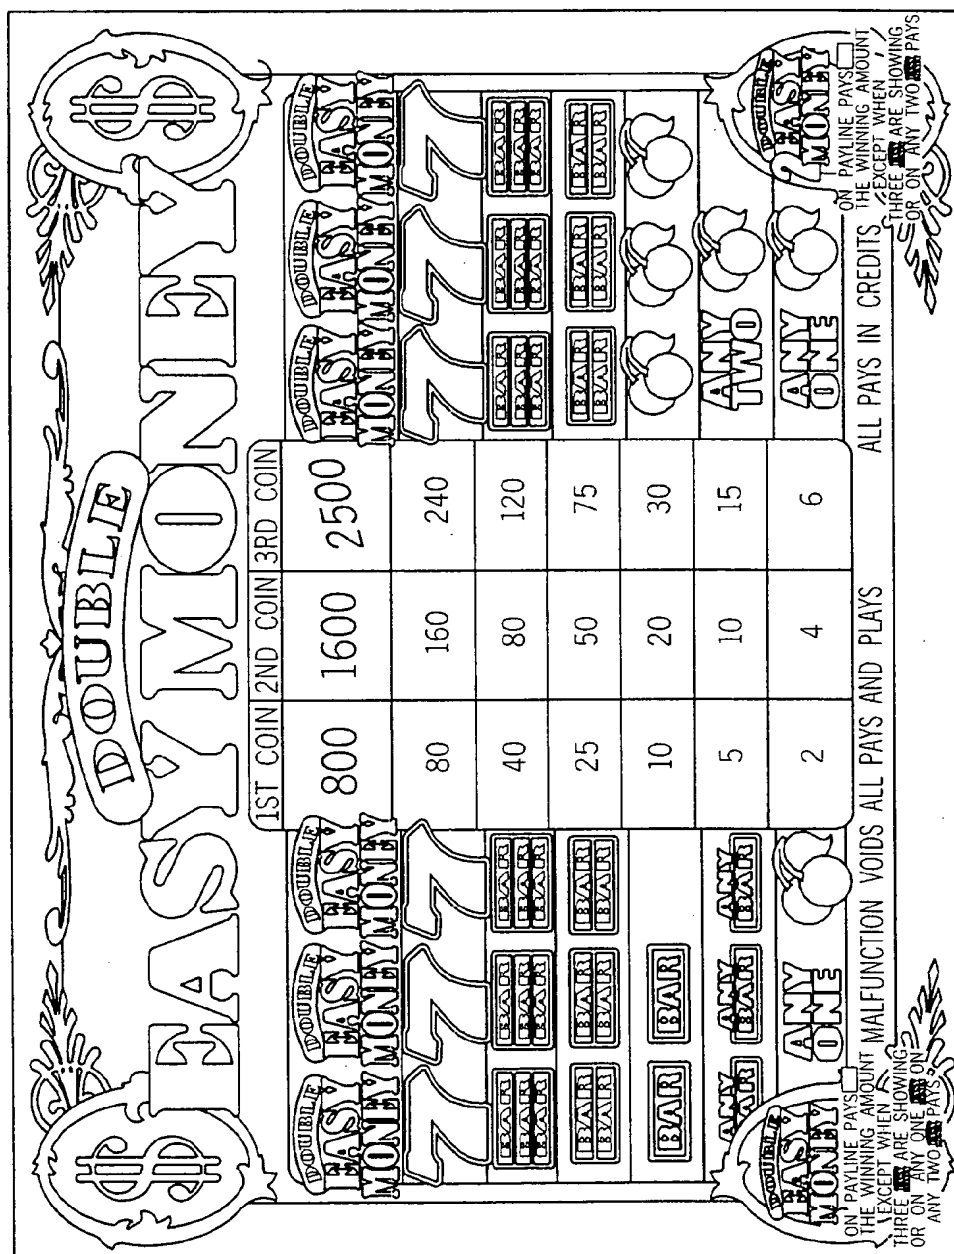 DOUBLE
EASY MONEY
1ST COIN 2ND COIN 3RD COIN
DOUBLE EASY MONEY DOUBLE EASY MONEY DOUBLE EASY MONEY 800 1600 2500 DOUBLE EASY MONEY DOUBLE EASY MONEY DOUBLE EASY MONEY
7 7 7 80 160 240 7 7 7
BAR BAR BAR BAR BAR BAR BAR BAR BAR 40 80 120 BAR BAR BAR BAR BAR BAR BAR BAR BAR
BAR BAR BAR BAR BAR BAR 25 50 75 BAR BAR BAR BAR BAR BAR
BAR BAR 10 20 30
ANY BAR ANY BAR ANY BAR 5 10 15 ANY TWO
ANY ONE 2 4 6 ANY ONE
DOUBLE EASY MONEY
ON PAYLINE PAYS
THE WINNING AMOUNT
EXCEPT WHEN
THREE ARE SHOWING
OR ON ANY ONE ON
ANY TWO PAYS
MALFUNCTION VOIDS ALL PAYS AND PLAYS
ALL PAYS IN CREDITS
DOUBLE EASY MONEY
ON PAYLINE PAYS
THE WINNING AMOUNT
EXCEPT WHEN
THREE ARE SHOWING
OR ON ANY TWO PAYS